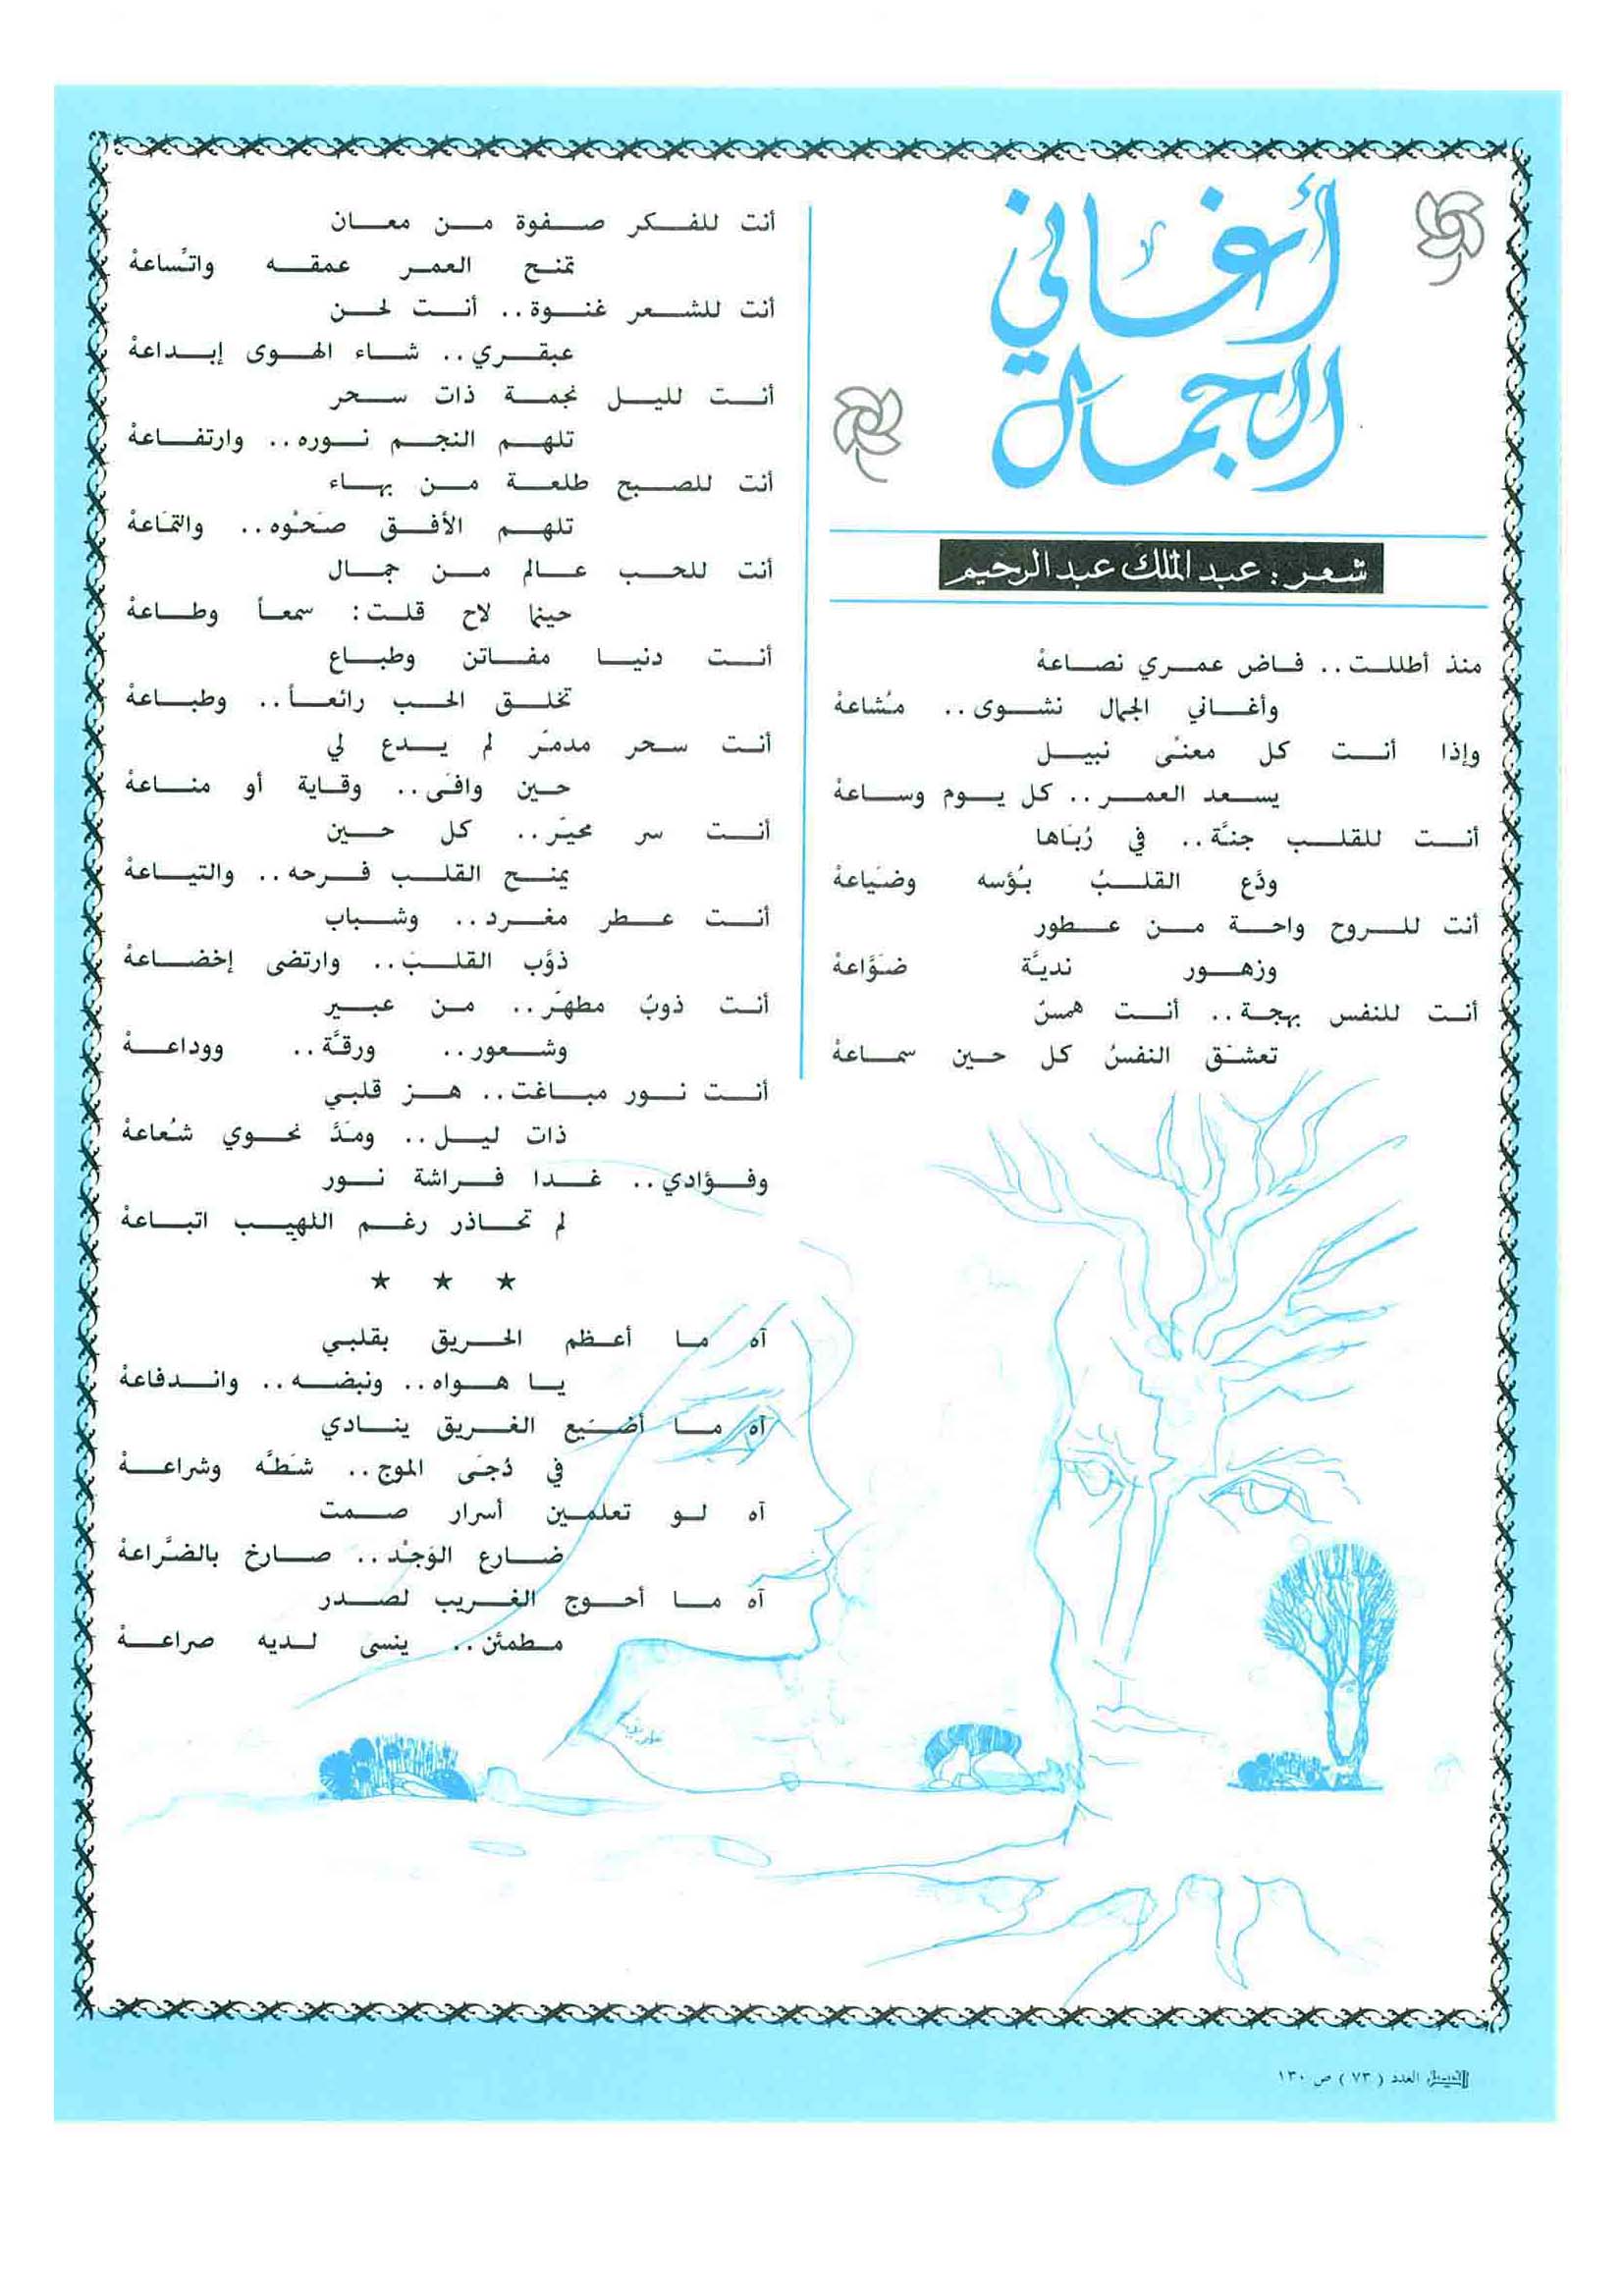 أغاني
الجمال
شعر: عبد الملك عبد الرحيم
منذ أطللت.. فاض عمري نصاعهْ
وأغاني الجمال نشوى.. مُشاعهْ
وإذا أنت كل معنًى نبيل
يسعد العمر.. كل يوم وساعهْ
أنت للقلب جنَّة.. في رُبَاها
ودَّع القلبُ بُؤسه وضَياعهْ
أنت للروح واحة من عطور
وزهور نديَّة ضَوَّاعهْ
أنت للنفس بهجة.. أنت همسٌ
تعشق النفسُ كل حين سماعهْ
أنت للفكر صفوة من معان
تمنح العمر عمقه واتِّساعهْ
أنت للشعر غنوة.. أنت لحن
عبقري.. شاء الهوى إبداعهْ
أنت لليل نجمة ذات سحر
تلهم النجم نوره.. وارتفاعهْ
أنت للصبح طلعة من بهاء
تلهم الأفق صَحْوه.. والتمَاعهْ
أنت للحب عالم من جمال
حينما لاح قلت: سمعاً وطاعهْ
أنت دنيا مفاتن وطباع
تخلق الحب رائعاً.. وطباعهْ
أنت سحر مدمّر لم يدع لي
حين وافَى.. وقاية أو مناعهْ
أنت سر محيّر.. كل حين
يمنح القلب فرحه.. والتياعهْ
أنت عطر مغرد.. وشباب
ذوَّب القلبَ.. وارتضى إخضاعهْ
أنت ذوبٌ مطهّر.. من عبير
وشعور.. ورقَّة.. ووداعهْ
أنت نور مباغت.. هز قلبي
ذات ليل.. ومَدَّ نحوي شُعاعهْ
وفؤادي.. غدا فراشة نور
لم تحاذر رغم اللهيب اتباعهْ
★ ★ ★
آه ما أعظم الحريق بقلبي
يا هواه.. ونبضه.. واندفاعهْ
آه ما أضيَع الغريق ينادي
في دُجَى الموج.. شطَّه وشراعهْ
آه لو تعلمين أسرار صمت
ضارع الوَجْد.. صارخ بالضَّراعهْ
آه ما أحوج الغريب لصدر
مطمئن.. ينسى لديه صراعهْ
العدد (٧٣) ص ١٣٠